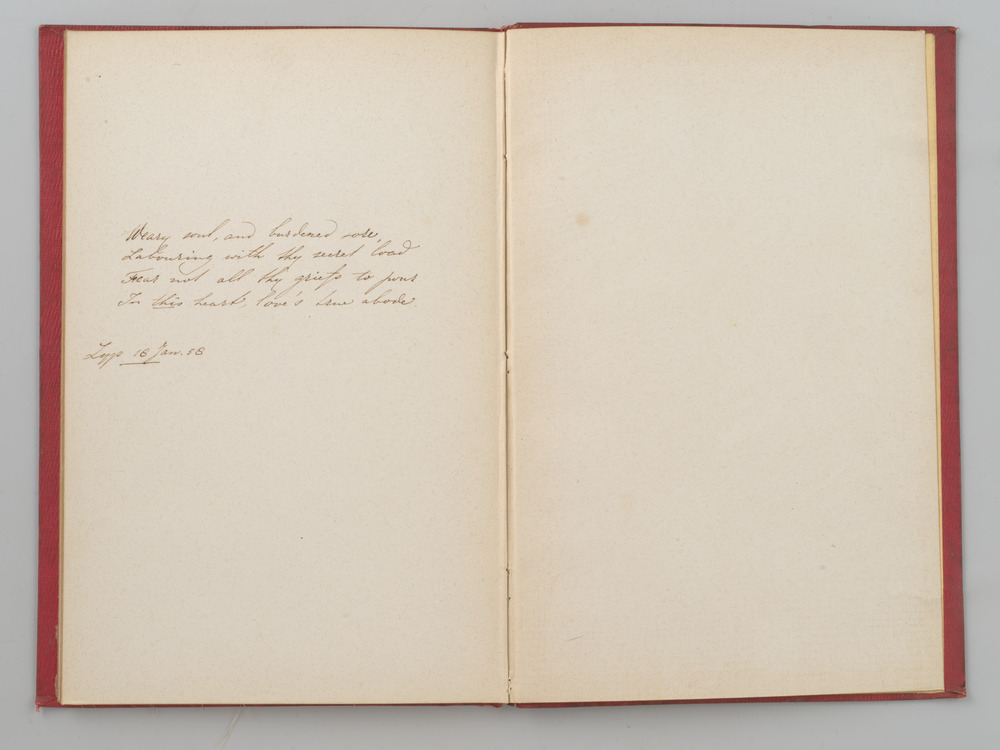 Weary soul, and burdened sore,
Labouring with thy secret load
Fear not all thy griefs to pour
In this heart, love's true abode.
Lyps 18 Jan. 58